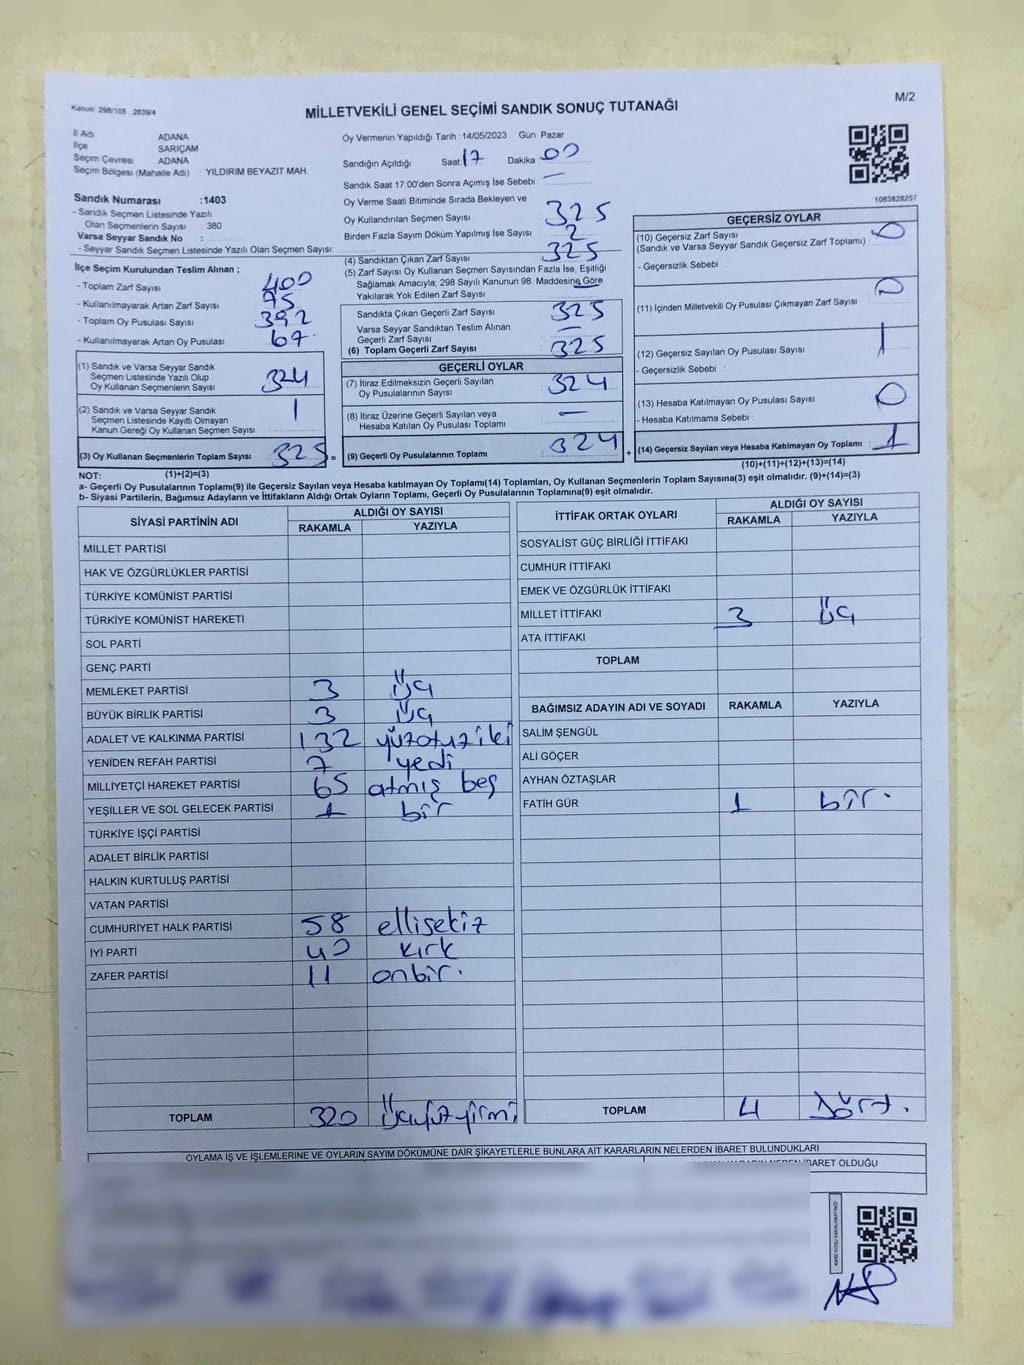 Kanun: 298/105 , 2839/4
MİLLETVEKİLİ GENEL SEÇİMİ SANDIK SONUÇ TUTANAĞI
M/2
İl Adı ADANA
İlçe SARIÇAM
Seçim Çevresi ADANA
Seçim Bölgesi (Mahalle Adı) YILDIRIM BEYAZIT MAH.
Sandık Numarası :1403
- Sandık Seçmen Listesinde Yazılı
Olan Seçmenlerin Sayısı : 380
Varsa Seyyar Sandık No :
- Seyyar Sandık Seçmen Listesinde Yazılı Olan Seçmen Sayısı:
İlçe Seçim Kurulundan Teslim Alınan ;
- Toplam Zarf Sayısı : 400
- Kullanılmayarak Artan Zarf Sayısı : 75
- Toplam Oy Pusulası Sayısı : 392
- Kullanılmayarak Artan Oy Pusulası : 67
(1) Sandık ve Varsa Seyyar Sandık
Seçmen Listesinde Yazılı Olup
Oy Kullanan Seçmenlerin Sayısı : 324
(2) Sandık ve Varsa Seyyar Sandık
Seçmen Listesinde Kayıtlı Olmayan
Kanun Gereği Oy Kullanan Seçmen Sayısı : 1
(3) Oy Kullanan Seçmenlerin Toplam Sayısı : 325 =
Oy Vermenin Yapıldığı Tarih :14/05/2023 Gün Pazar
Sandığın Açıldığı Saat 17 Dakika 00
Sandık Saat 17.00'den Sonra Açımış İse Sebebi : —
Oy Verme Saati Bitiminde Sırada Bekleyen ve
Oy Kullandırılan Seçmen Sayısı : 325
Birden Fazla Sayım Döküm Yapılmış İse Sayısı : 2
(4) Sandıktan Çıkan Zarf Sayısı : 325
(5) Zarf Sayısı Oy Kullanan Seçmen Sayısından Fazla İse, Eşitliği
Sağlamak Amacıyla; 298 Sayılı Kanunun 98. Maddesine Göre
Yakılarak Yok Edilen Zarf Sayısı : —
Sandıkta Çıkan Geçerli Zarf Sayısı : 325
Varsa Seyyar Sandıktan Teslim Alınan
Geçerli Zarf Sayısı : —
(6) Toplam Geçerli Zarf Sayısı : 325
GEÇERLİ OYLAR
(7) İtiraz Edilmeksizin Geçerli Sayılan
Oy Pusulalarının Sayısı : 324
(8) İtiraz Üzerine Geçerli Sayılan veya
Hesaba Katılan Oy Pusulası Toplamı : —
(9) Geçerli Oy Pusulalarının Toplamı : 324 +
1083828257
GEÇERSİZ OYLAR
(10) Geçersiz Zarf Sayısı : 0
(Sandık ve Varsa Seyyar Sandık Geçersiz Zarf Toplamı)
- Geçersizlik Sebebi :
(11) İçinden Milletvekili Oy Pusulası Çıkmayan Zarf Sayısı : 0
(12) Geçersiz Sayılan Oy Pusulası Sayısı : 1
- Geçersizlik Sebebi :
(13) Hesaba Katılmayan Oy Pusulası Sayısı : 0
- Hesaba Katılmama Sebebi :
(14) Geçersiz Sayılan veya Hesaba Katılmayan Oy Toplamı : 1
NOT: (1)+(2)=(3)
(10)+(11)+(12)+(13)=(14)
a- Geçerli Oy Pusulalarının Toplamı(9) ile Geçersiz Sayılan veya Hesaba katılmayan Oy Toplamı(14) Toplamları, Oy Kullanan Seçmenlerin Toplam Sayısına(3) eşit olmalıdır. (9)+(14)=(3)
b- Siyasi Partilerin, Bağımsız Adayların ve İttifakların Aldığı Ortak Oyların Toplamı, Geçerli Oy Pusulalarının Toplamına(9) eşit olmalıdır.
SİYASİ PARTİNİN ADI ALDIĞI OY SAYISI
RAKAMLA YAZIYLA
MİLLET PARTİSİ
HAK VE ÖZGÜRLÜKLER PARTİSİ
TÜRKİYE KOMÜNİST PARTİSİ
TÜRKİYE KOMÜNİST HAREKETİ
SOL PARTİ
GENÇ PARTİ
MEMLEKET PARTİSİ 3 üç
BÜYÜK BİRLİK PARTİSİ 3 üç
ADALET VE KALKINMA PARTİSİ 132 yüzotuziki
YENİDEN REFAH PARTİSİ 7 yedi
MİLLİYETÇİ HAREKET PARTİSİ 65 atmış beş
YEŞİLLER VE SOL GELECEK PARTİSİ 1 bir
TÜRKİYE İŞÇİ PARTİSİ
ADALET BİRLİK PARTİSİ
HALKIN KURTULUŞ PARTİSİ
VATAN PARTİSİ
CUMHURİYET HALK PARTİSİ 58 ellisekiz
İYİ PARTİ 40 kırk
ZAFER PARTİSİ 11 onbir.
TOPLAM 320 üçyüzyirmi
İTTİFAK ORTAK OYLARI ALDIĞI OY SAYISI
RAKAMLA YAZIYLA
SOSYALİST GÜÇ BİRLİĞİ İTTİFAKI
CUMHUR İTTİFAKI
EMEK VE ÖZGÜRLÜK İTTİFAKI
MİLLET İTTİFAKI 3 üç
ATA İTTİFAKI
TOPLAM
BAĞIMSIZ ADAYIN ADI VE SOYADI RAKAMLA YAZIYLA
SALİM ŞENGÜL
ALİ GÖÇER
AYHAN ÖZTAŞLAR
FATİH GÜR 1 bir.
TOPLAM 4 Dört.
OYLAMA İŞ VE İŞLEMLERİNE VE OYLARIN SAYIM DÖKÜMÜNE DAİR ŞİKAYETLERLE BUNLARA AİT KARARLARIN NELERDEN İBARET BULUNDUKLARI
İBARET OLDUĞU